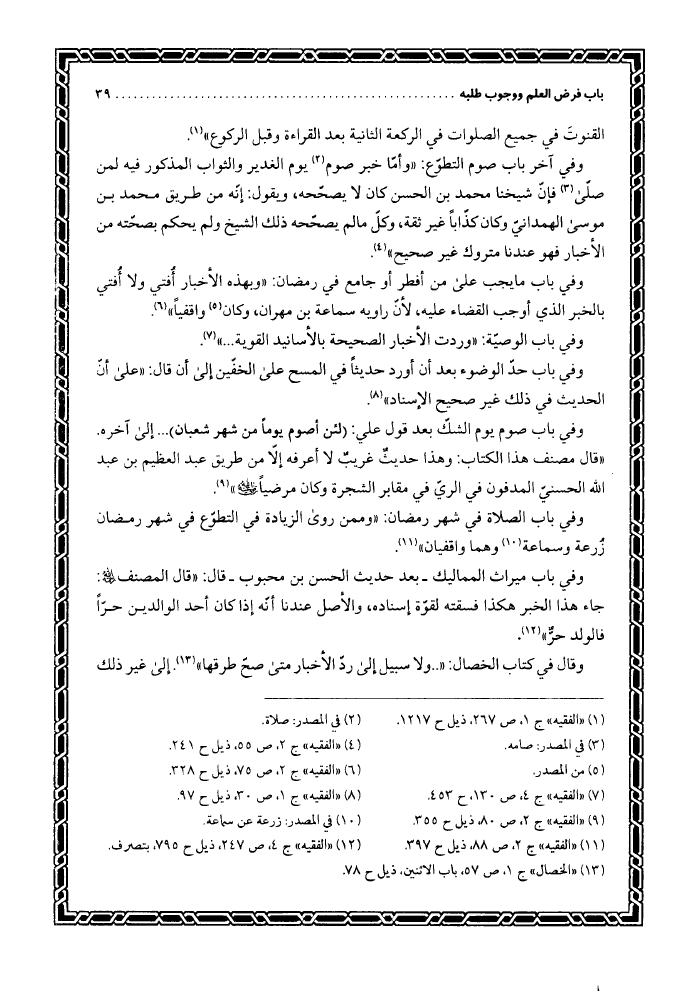 باب فرض العلم ووجوب طلبه ........................................................ ٣٩
القنوتَ في جميع الصلوات في الركعة الثانية بعد القراءة وقبل الركوع»(١).
وفي آخر باب صوم التطوّع: «وأمّا خبر صوم(٢) يوم الغدير والثواب المذكور فيه لمن
صلّىٰ(٣) فإنّ شيخنا محمد بن الحسن كان لا يصحّحه، ويقول: إنّه من طريق محمد بن
موسىٰ الهمدانيّ وكان كذّاباً غير ثقة، وكلّ مالم يصحّحه ذلك الشيخ ولم يحكم بصحّته من
الأخبار فهو عندنا متروك غير صحيح»(٤).
وفي باب مايجب علىٰ من أفطر أو جامع في رمضان: «وبهذه الأخبار أُفتي ولا أُفتي
بالخبر الذي أوجب القضاء عليه، لأنّ راويه سماعة بن مهران، وكان(٥) واقفياً»(٦).
وفي باب الوصيّة: «وردت الأخبار الصحيحة بالأسانيد القوية...»(٧).
وفي باب حدّ الوضوء بعد أن أورد حديثاً في المسح علىٰ الخفّين إلىٰ أن قال: «علىٰ أنّ
الحديث في ذلك غير صحيح الإسناد»(٨).
وفي باب صوم يوم الشكّ بعد قول علي: (لئن أصوم يوماً من شهر شعبان)... إلىٰ آخره.
«قال مصنف هذا الكتاب: وهذا حديثٌ غريبٌ لا أعرفه إلّا من طريق عبد العظيم بن عبد
الله الحسنيّ المدفون في الريّ في مقابر الشجرة وكان مرضياً»(٩).
وفي باب الصلاة في شهر رمضان: «وممن روىٰ الزيادة في التطوّع في شهر رمضان
زُرعة وسماعة(١٠) وهما واقفيان»(١١).
وفي باب ميراث المماليك ـ بعد حديث الحسن بن محبوب ـ قال: «قال المصنف:
جاء هذا الخبر هكذا فسقته لقوّة إسناده، والأصل عندنا أنّه إذا كان أحد الوالدين حرّاً
فالولد حرٌّ»(١٢).
وقال في كتاب الخصال: «..ولا سبيل إلىٰ ردّ الأخبار متىٰ صحّ طرقها»(١٣). إلىٰ غير ذلك
(١) «الفقيه» ج ١، ص ٢٦٧، ذيل ح ١٢١٧. (٢) في المصدر: صلاة.
(٣) في المصدر: صامه. (٤) «الفقيه» ج ٢، ص ٥٥، ذيل ح ٢٤١.
(٥) من المصدر. (٦) «الفقيه» ج ٢، ص ٧٥، ذيل ح ٣٢٨.
(٧) «الفقيه» ج ٤، ص ١٣٠، ح ٤٥٣. (٨) «الفقيه» ج ١، ص ٣٠، ذيل ح ٩٧.
(٩) «الفقيه» ج ٢، ص ٨٠، ذيل ح ٣٥٥. (١٠) في المصدر: زرعة عن سماعة.
(١١) «الفقيه» ج ٢، ص ٨٨، ذيل ح ٣٩٧. (١٢) «الفقيه» ج ٤، ص ٢٤٧، ذيل ح ٧٩٥، بتصرف.
(١٣) «الخصال» ج ١، ص ٥٧، باب الاثنين، ذيل ح ٧٨.